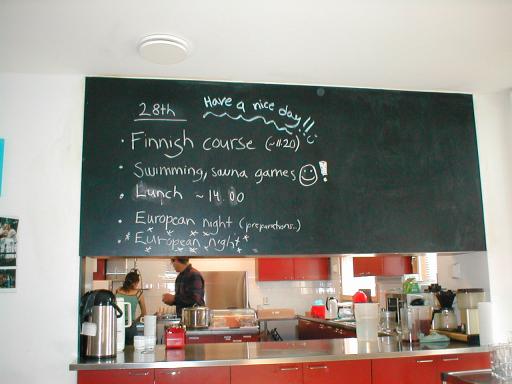 28th
Have a nice day!!
• Finnish course (-11.20)
• Swimming, sauna games ☺!
• Lunch ~14.00
• European night (preparations..)
• *European night*